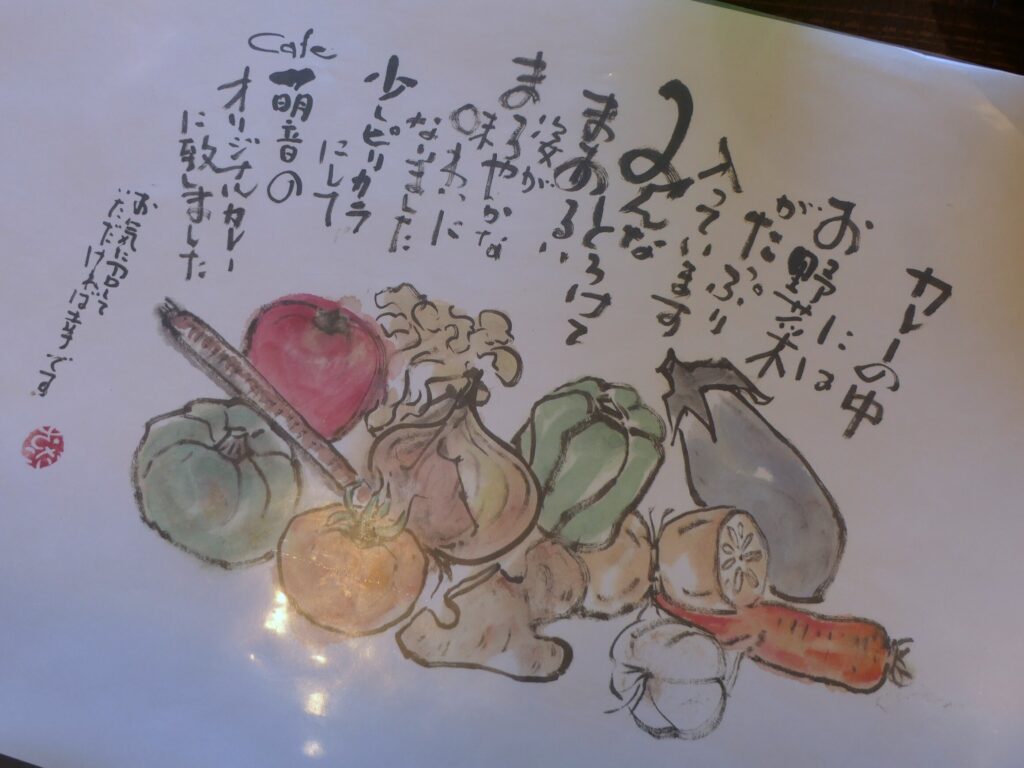 カレーの中
には
お野菜
がたっぷり
入っています
みんな
とろけて
姿が
まろやかな
味わいに
なりました
少しピリカラ
にして
Cafe
萌音の
オリジナルカレー
に致しました
お気に召して
いただければ幸です